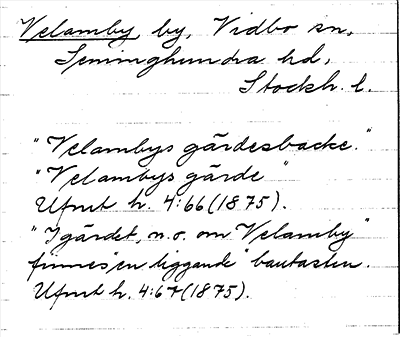 Velamby by, Vidbo sn,
Seminghundra hd,
Stockh. l.
"Velambys gärdesbacke."
"Velambys gärde"
Ufmt h. 4:66 (1875).
"I gärdet, n.ö. om Velamby"
finnes "en liggande" bautasten.
Ufmt h. 4:67 (1875).